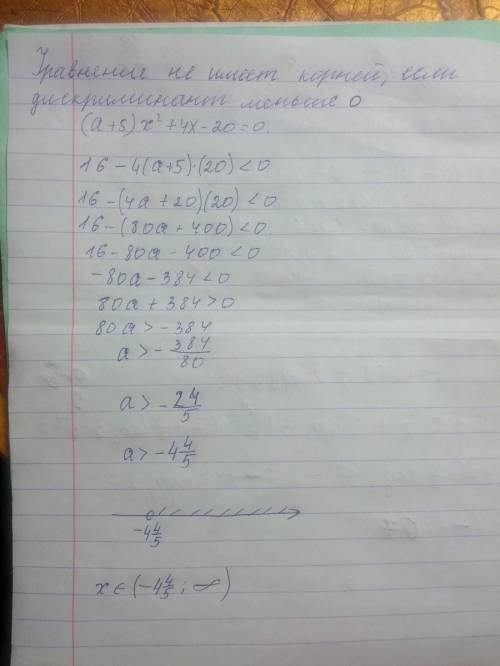 Уравнение не имеет корней, если
дискриминант меньше 0
(a+5)x²+4x-20=0.
16-4(a+5)·(20)<0
16-(4a+20)(20)<0
16-(80a+400)<0
16-80a-400<0
-80a-384<0
80a+384>0
80a>-384
a>-384/80
a>-24/5
a>-4 4/5
-4 4/5
x∈(-4 4/5; ∞)